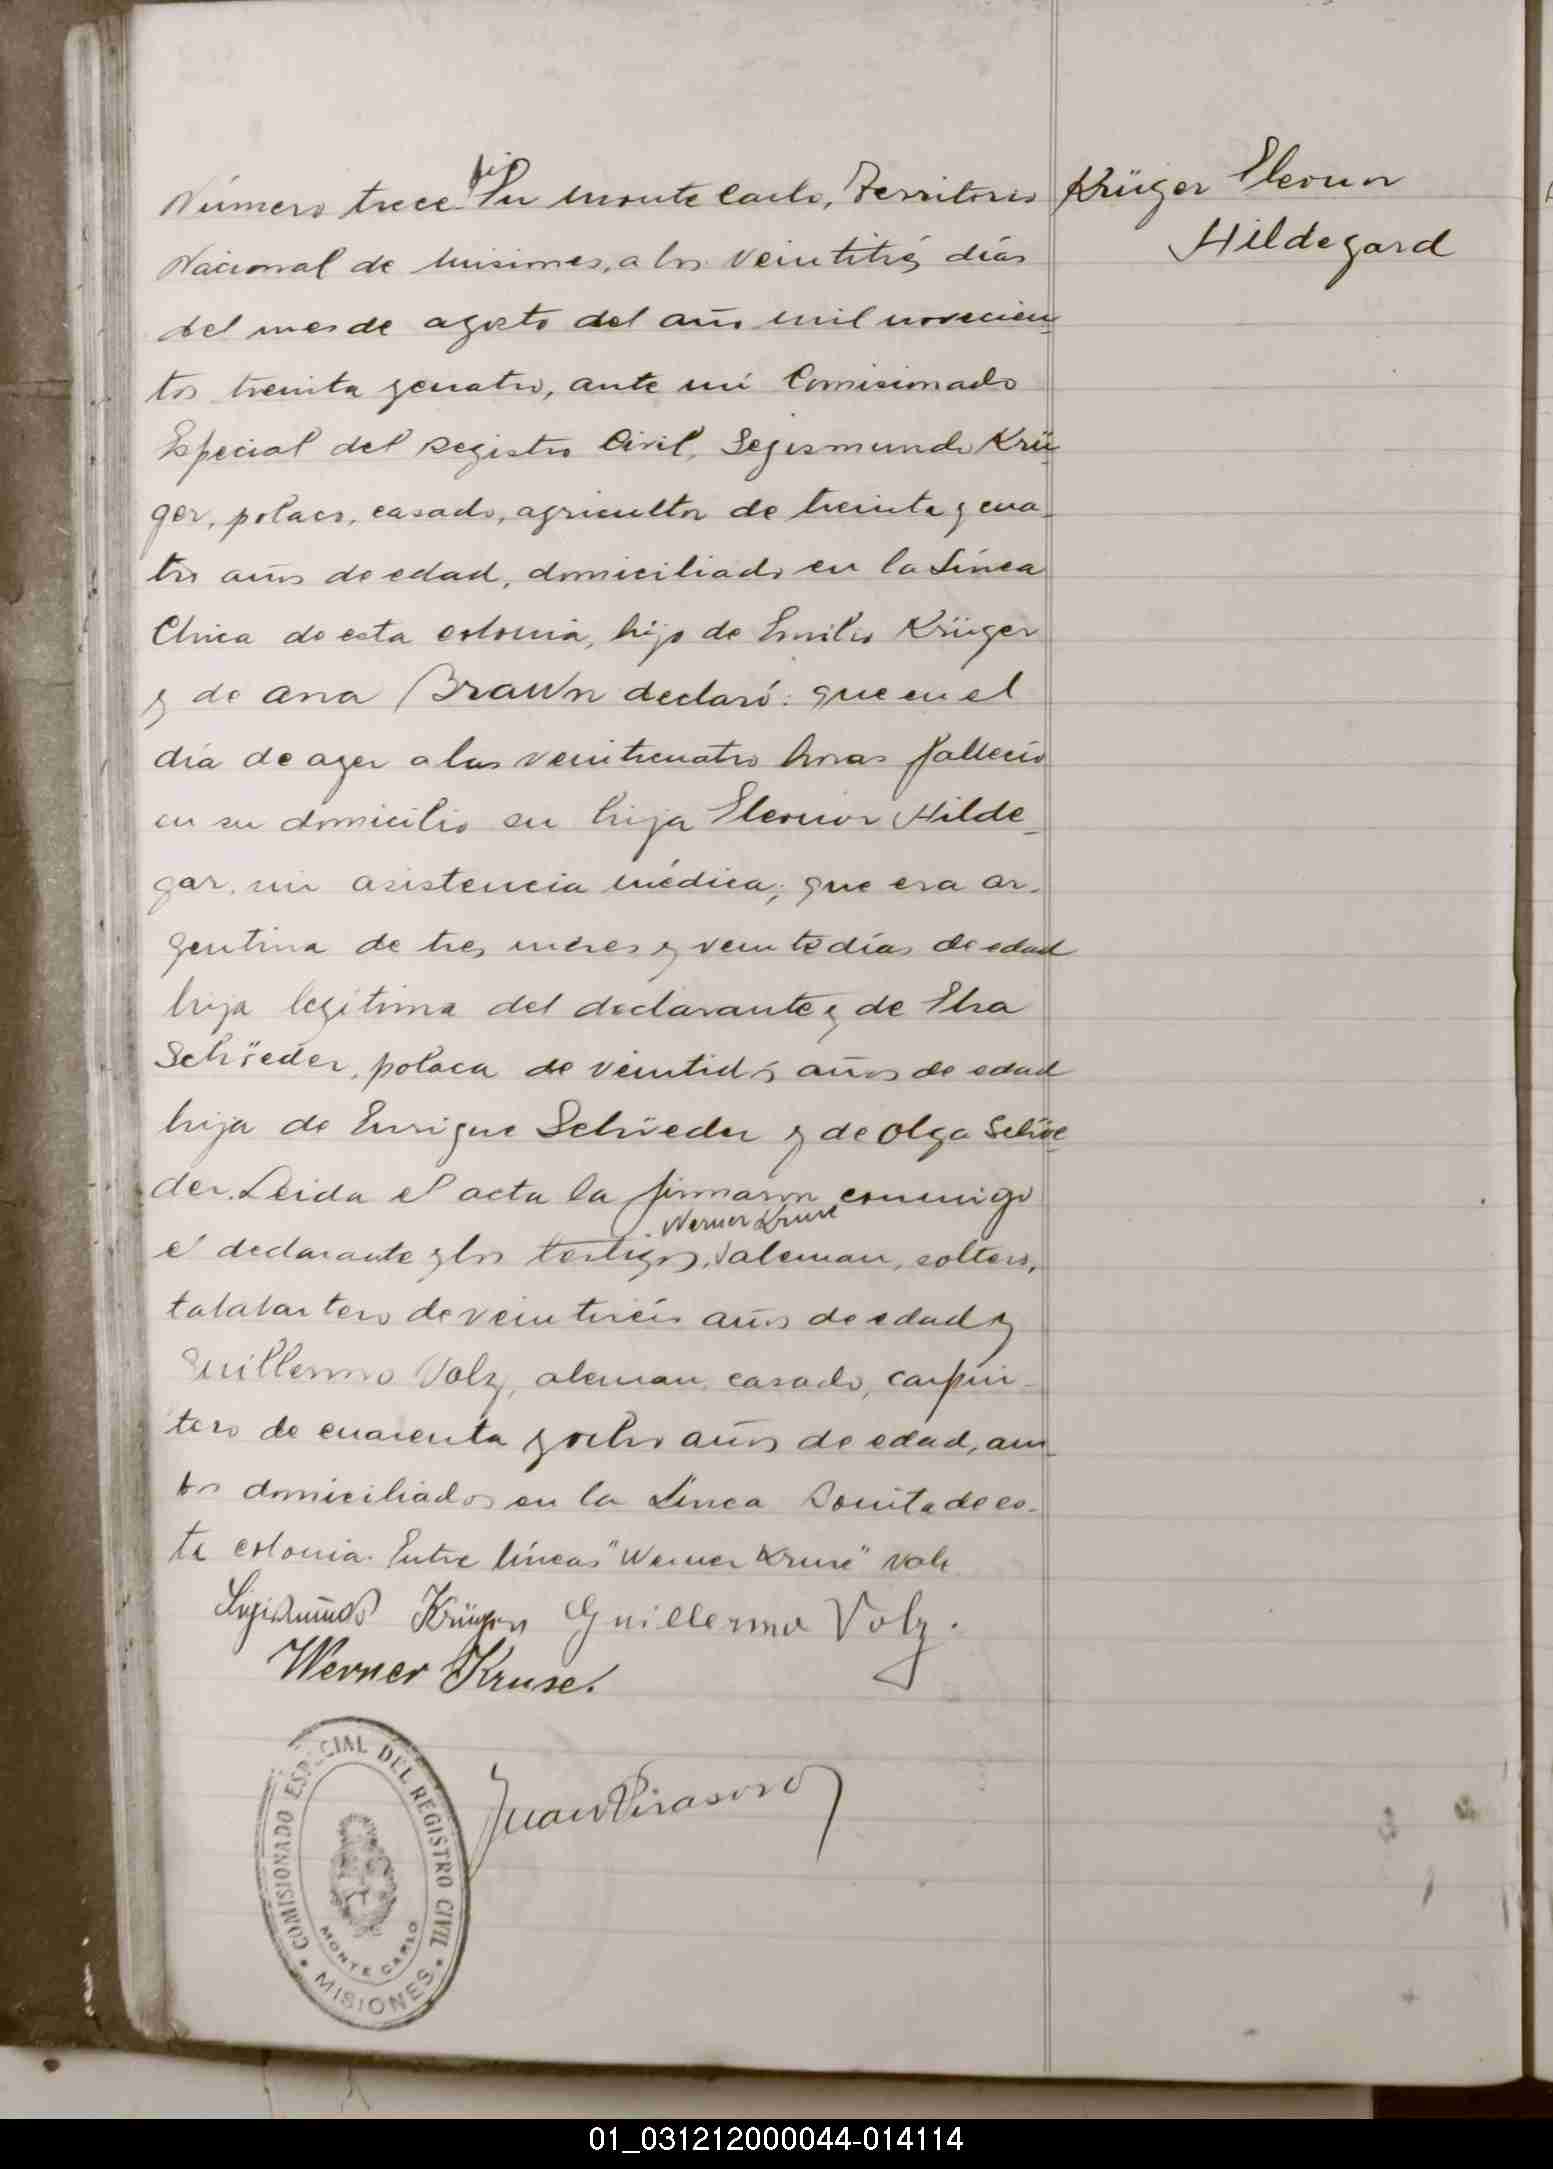 Número trece. En Monte Carlo, Territorio
Krüger Eleonor
Hildegard
Nacional de Misiones, a los veintitrés días
del mes de agosto del año mil novecien-
tos treinta y cuatro, ante mí Comisionado
Especial del Registro Civil, Segismundo Krü-
ger, polaco, casado, agricultor de treinta y cua-
tro años de edad, domiciliado en la Línea
Chica de esta colonia, hijo de Emilio Krüger
y de Ana Brawn declaró: que en el
día de ayer a las veinticuatro horas falleció
en su domicilio su hija Eleonor Hilde-
gar, sin asistencia médica; que era ar-
gentina de tres meses y veinte días de edad
hija legítima del declarante y de Elsa
Schöeder, polaca de veintidós años de edad
hija de Enrique Schöeder y de Olga Schöe-
der. Leida el acta la firmaron conmigo
Werner Kruse
el declarante y los testigos, aleman, soltero,
talabartero de veintiséis años de edad y
Guillermo Volz, aleman, casado, carpin-
tero de cuarenta y ocho años de edad, am-
bos domiciliados en la Línea de es-
ta colonia. Entre líneas "Werner Kruse" vale.
Krüger Guillermo Volz.
Werner Kruse.
Juan
COMISIONADO ESPECIAL DEL REGISTRO CIVIL
MONTE CARLO
• MISIONES •
01_031212000044-014114